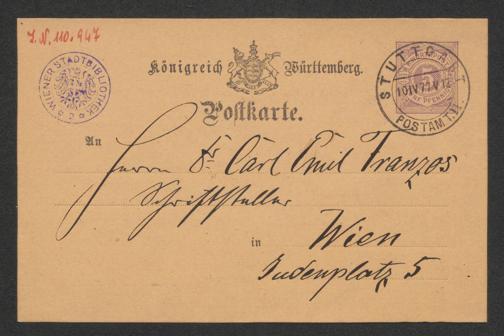 I.N. 110.947
WIENER STADTBIBLIOTHEK
Königreich Württemberg.
STUTTGART
POSTAMT
Postkarte.
An
Herrn Dr Carl Emil Franzos
Schriftsteller
in Wien
Judenplatz 5